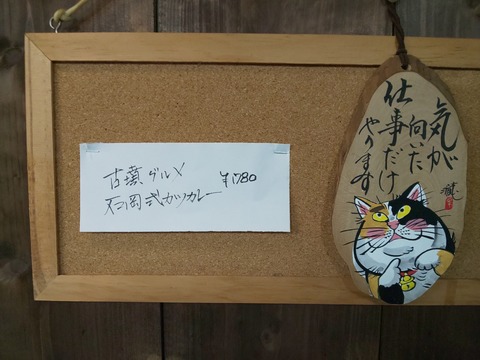 古墳グルメ
石岡式カツカレー ¥1,780
気が
向いた
仕事だけ
やります